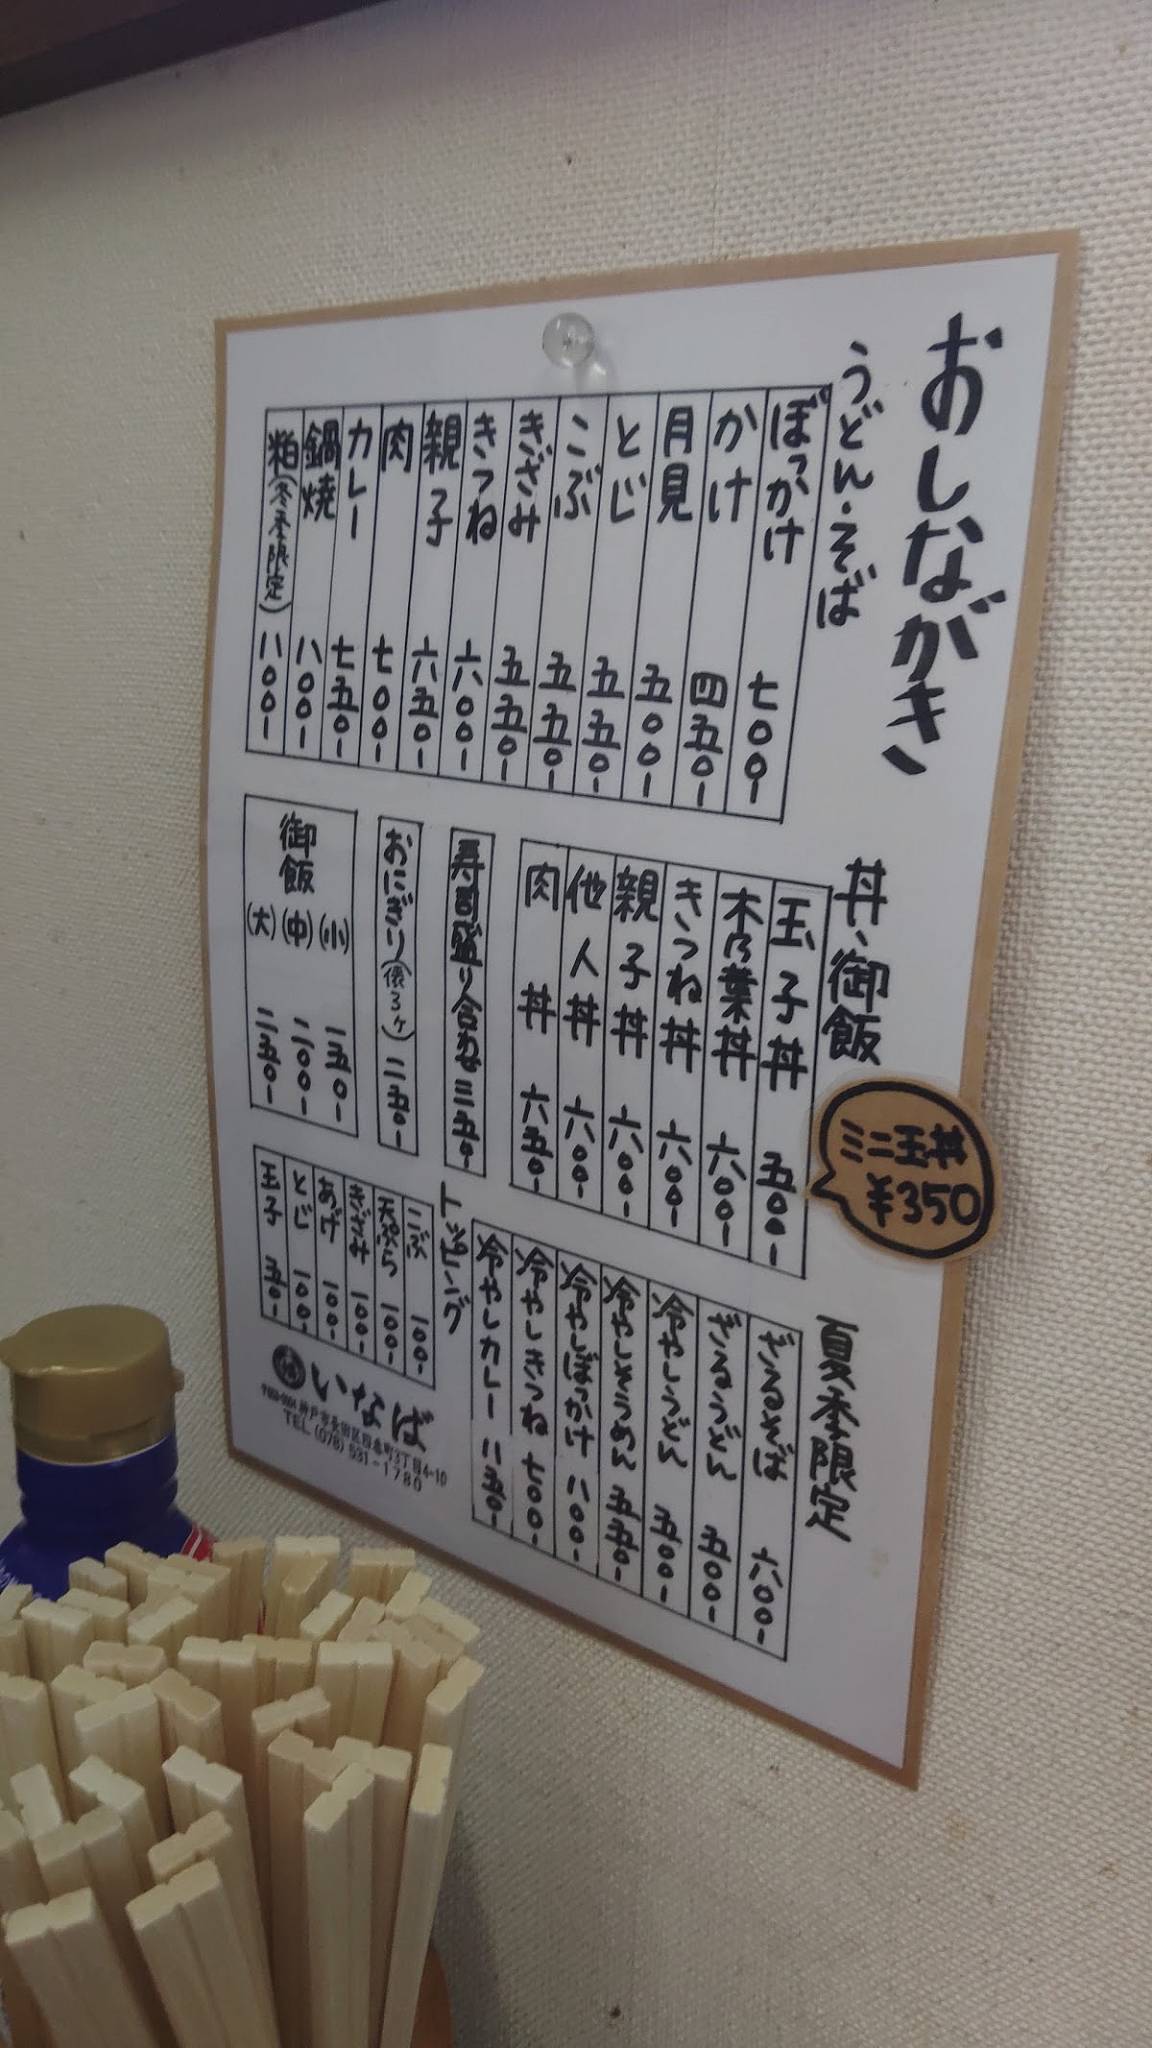 おしながき
うどん・そば
ぼっかけ 七〇〇-
かけ 四五〇-
月見 五〇〇-
とじ 五五〇-
こぶ 五五〇-
きざみ 五五〇-
きつね 六〇〇-
親子 六五〇-
肉 七〇〇-
カレー 七五〇-
鍋焼 八〇〇-
粕(冬季限定) 八〇〇-
丼、御飯
ミニ玉丼
¥350
玉子丼 五〇〇-
木乃葉丼 六〇〇-
きつね丼 六〇〇-
親子丼 六〇〇-
他人丼 六〇〇-
肉丼 六五〇-
寿司盛り合わせ 三五〇-
おにぎり(俵3ヶ) 二五〇-
御飯
(小) 一五〇-
(中) 二〇〇-
(大) 二五〇-
夏季限定
ざるそば 六〇〇-
ざるうどん 五〇〇-
冷やしうどん 五〇〇-
冷やしそうめん 五五〇-
冷やしぼっかけ 八〇〇-
冷やしきつね 七〇〇-
冷やしカレー 八五〇-
トッピング
こぶ 一〇〇-
天ぷら 一〇〇-
きざみ 一〇〇-
あげ 一〇〇-
とじ 一〇〇-
玉子 五〇-
いなば
神戸市長田区四番町3丁目4-10
TEL (078) 531-1780